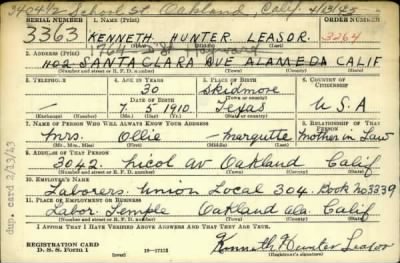 3404½ School St Oakland, Calif. 4/13/43
SERIAL NUMBER 1. NAME (Print) ORDER NUMBER
3363 KENNETH HUNTER LEASOR 3264
(First) (Middle) (Last)
2. ADDRESS (Print)
1102 SANTA CLARA AVE ALAMEDA CALIF
(Number and street or R. F. D. number) (Town) (County) (State)
3. TELEPHONE 4. AGE IN YEARS 5. PLACE OF BIRTH 6. COUNTRY OF CITIZENSHIP
— 30 Skidmore
DATE OF BIRTH (Town or county)
7. 5. 1910. Texas U S A
(Exchange) (Number) (Mo.) (Day) (Yr.) (State or country)
7. NAME OF PERSON WHO WILL ALWAYS KNOW YOUR ADDRESS 8. RELATIONSHIP OF THAT PERSON
Mrs. Ollie — Marquette Mother in Law
(Mr., Mrs., Miss) (First) (Middle) (Last)
9. ADDRESS OF THAT PERSON
3042. Nicol av Oakland Calif
(Number and street or R. F. D. number) (Town) (County) (State)
10. EMPLOYER'S NAME
Laborers. Union Local 304. Book No 3239
11. PLACE OF EMPLOYMENT OR BUSINESS
Labor. Temple Oakland Ala. Calif
(Number and street or R. F. D. number) (Town) (County) (State)
I AFFIRM THAT I HAVE VERIFIED ABOVE ANSWERS AND THAT THEY ARE TRUE.
REGISTRATION CARD
D. S. S. Form 1 (over) 16—17105 Kenneth Hunter Leasor
(Registrant's signature)
dup. card 2/13/43